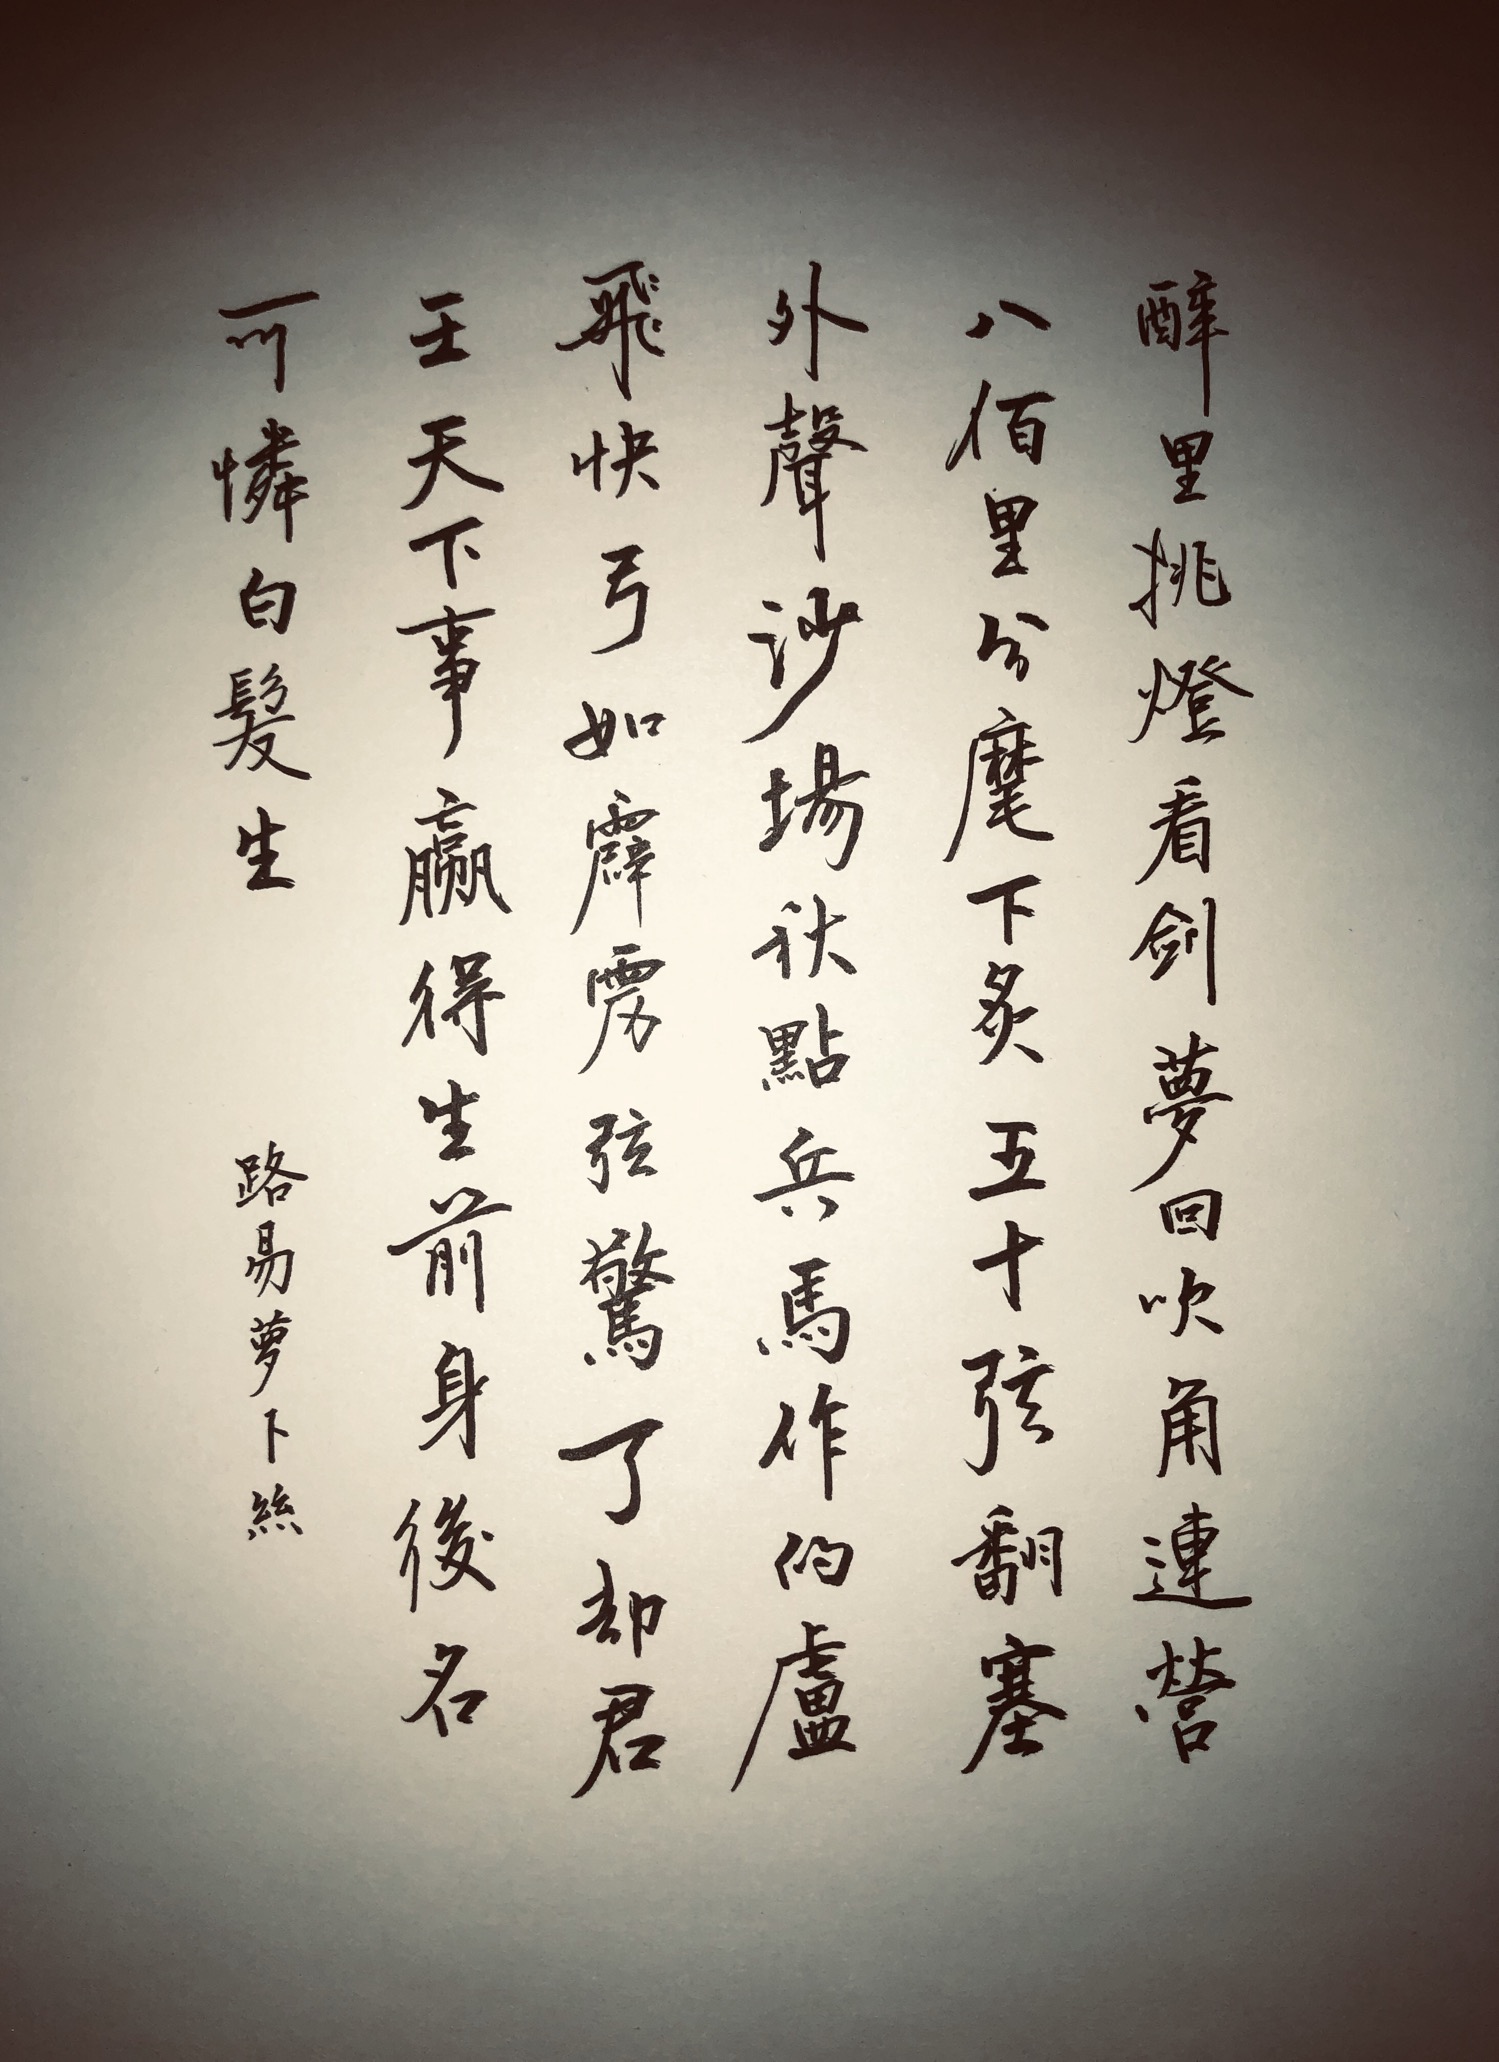 醉里挑燈看劍夢回吹角連營
八佰里分麾下炙五十弦翻塞
外聲沙場秋點兵馬作的盧
飛快弓如霹靂弦驚了却君
王天下事贏得生前身後名
可憐白髮生
路易夢卜絲